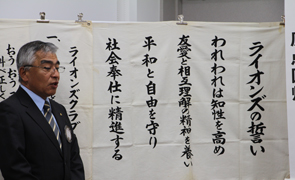 ライオンズの誓い
われわれは知性を高め
友愛と相互理解の精神を養い
平和と自由を守り
社会奉仕に精進する
ライオンズクラブ